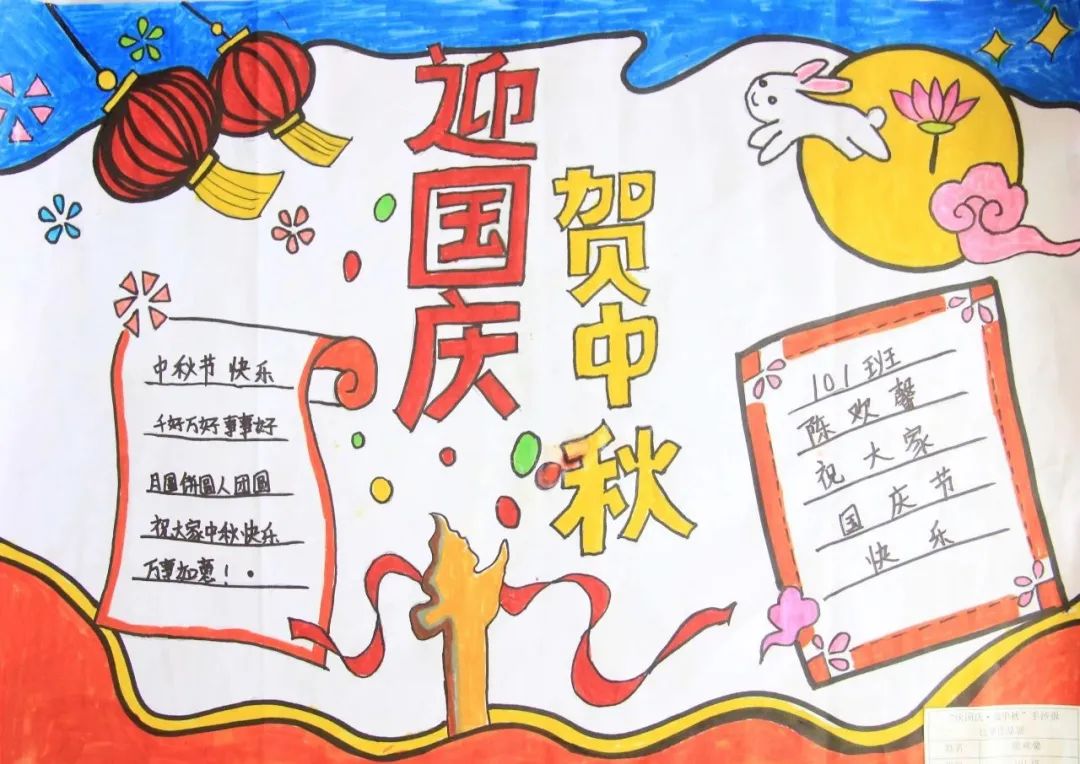 迎国庆
贺中秋
中秋节快乐
千好万好事事好
月圆饼圆人团圆
祝大家中秋快乐
万事如意！.
101班
陈欢馨
祝大家
国庆节
快乐
姓名